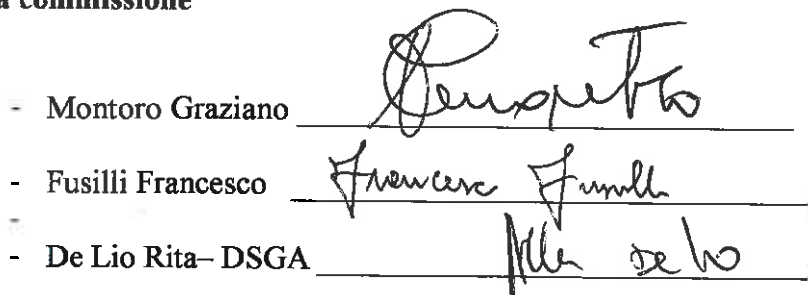 a commissione
- Montoro Graziano
- Fusilli Francesco Francesco Fusilli
-
- De Lio Rita– DSGA De Lio